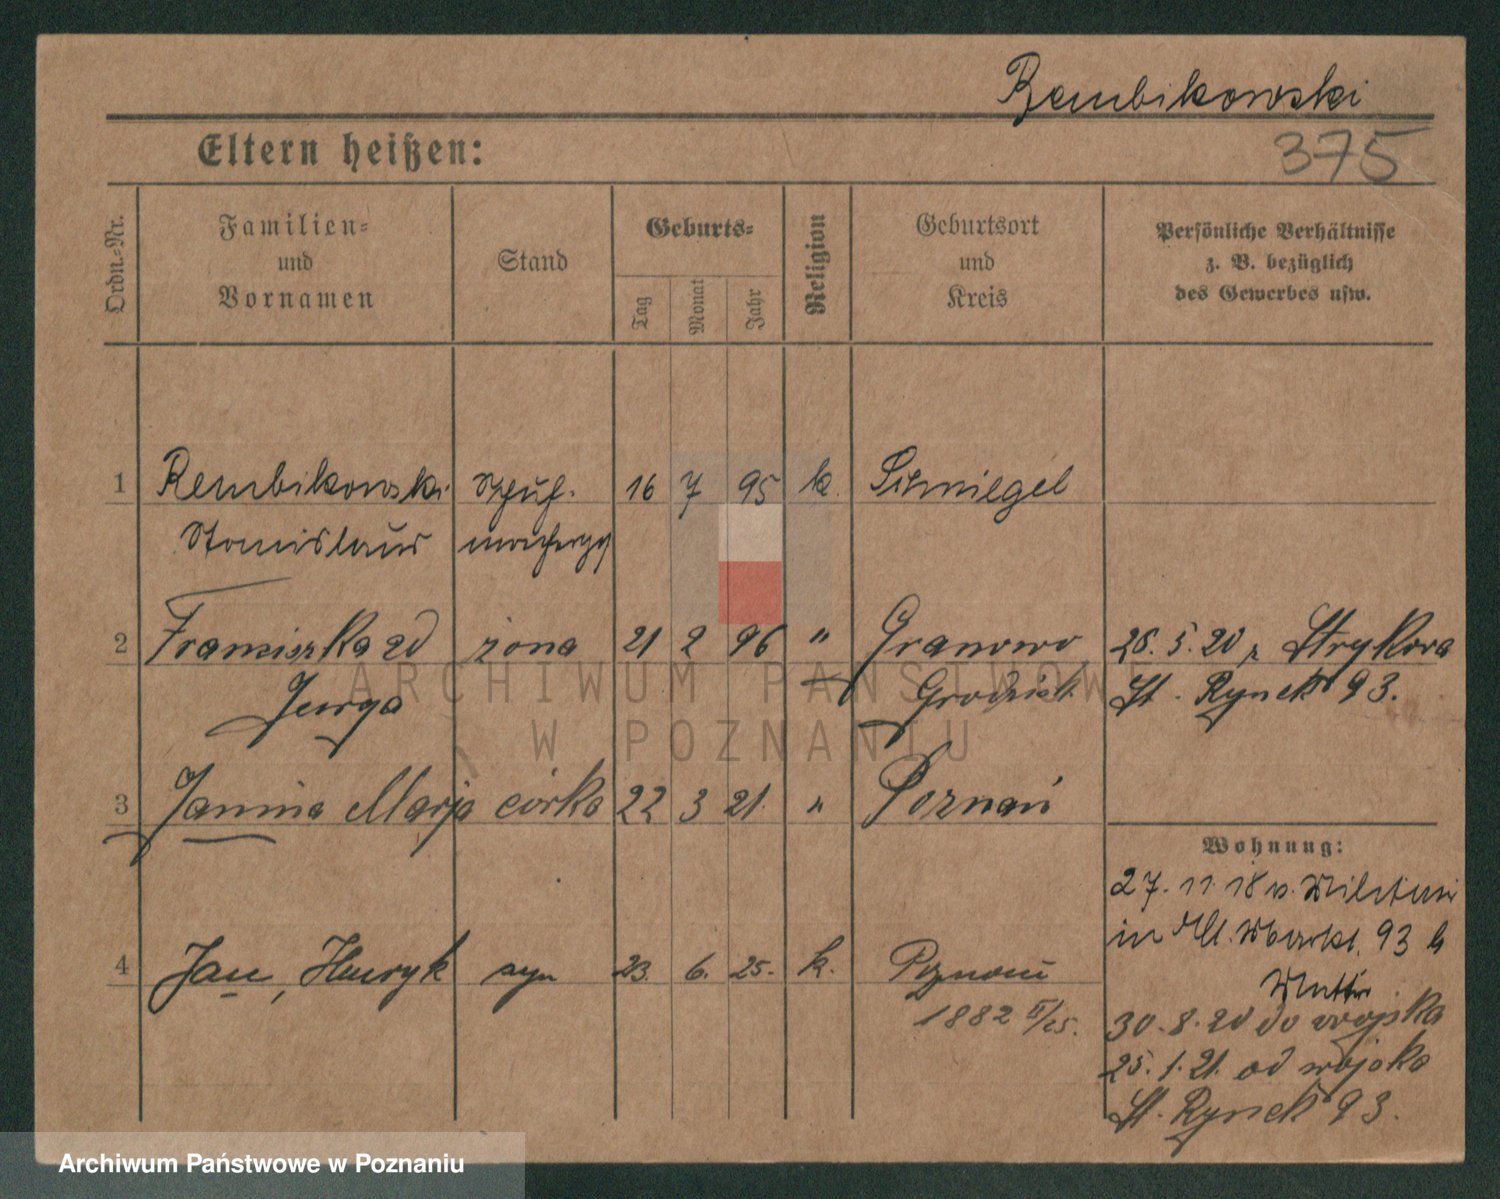 Rembikowski
Eltern heißen:
375
Ordn.-Nr.
Familien-
und
Vornamen
Stand
Geburts-
Tag
Monat
Jahr
Religion
Geburtsort
und
Kreis
Persönliche Verhältnisse
z. B. bezüglich
des Gewerbes usw.
1 Rembikowski Schuh- 16 7 95 k. Schmiegel
Stanislaus machergs
2 Franciszka zd żona 21 2 96 " Granowo 26. 5. 20 z Strykowa
Jerga Grodzisk St. Rynek 93.
3 Janina Marja córka 22 3 21. " Poznań
Wohnung:
27. 11. 18 v. Militär
in Alt. Markt. 93 b
Mutter
4 Jan, Henryk syn 23. 6. 25. k. Poznań
1882 II/25.
30. 8. 20 do wojska
25. 1. 21. od wojska
St. Rynek 93.
ARCHIWUM PAŃSTWOWE
W POZNANIU
Archiwum Państwowe w Poznaniu